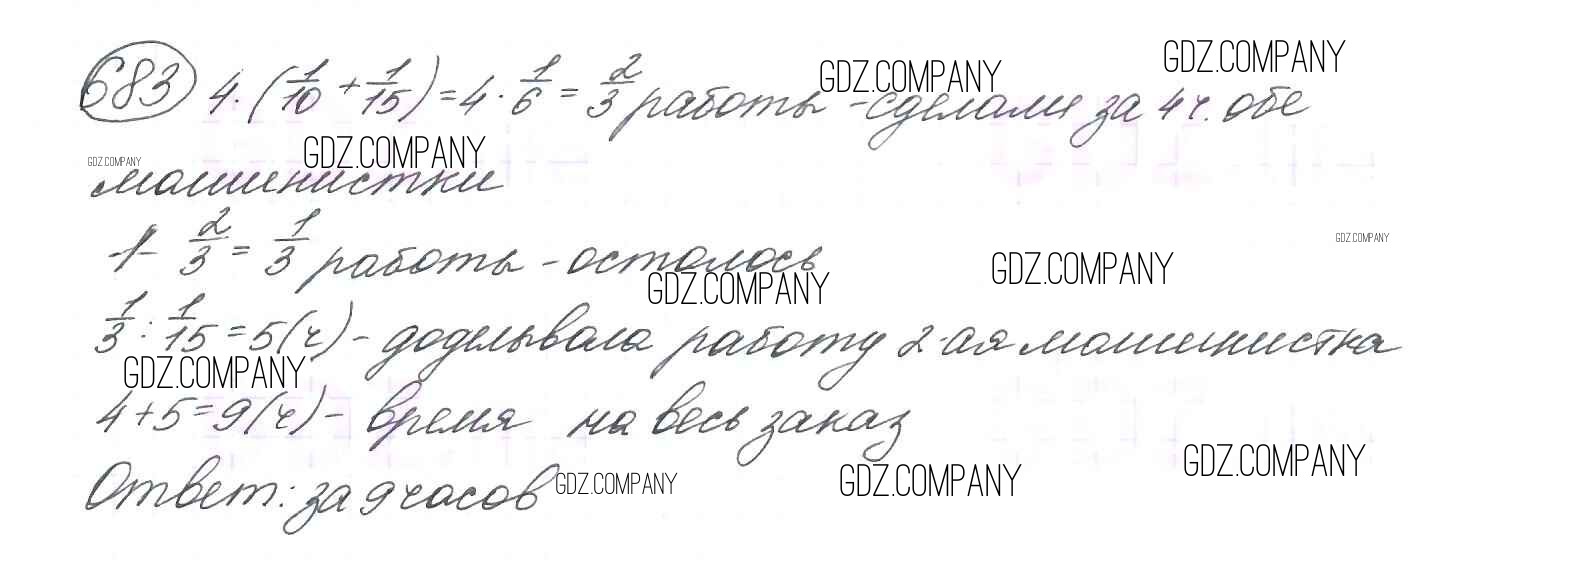 683 4·(1/10 + 1/15) = 4 · 1/6 = 2/3 работы - сделали за 4 ч. обе
машинистки
1 - 2/3 = 1/3 работы - осталось
1/3 : 1/15 = 5(ч) - доделывала работу 2-ая машинистка
4 + 5 = 9(ч) - время на весь заказ
Ответ: за 9 часов
GDZ.COMPANY
GDZ.COMPANY
GDZ.COMPANY
GDZ.COMPANY
GDZ.COMPANY
GDZ.COMPANY
GDZ.COMPANY
GDZ.COMPANY
GDZ.COMPANY
GDZ.COMPANY
GDZ.COMPANY